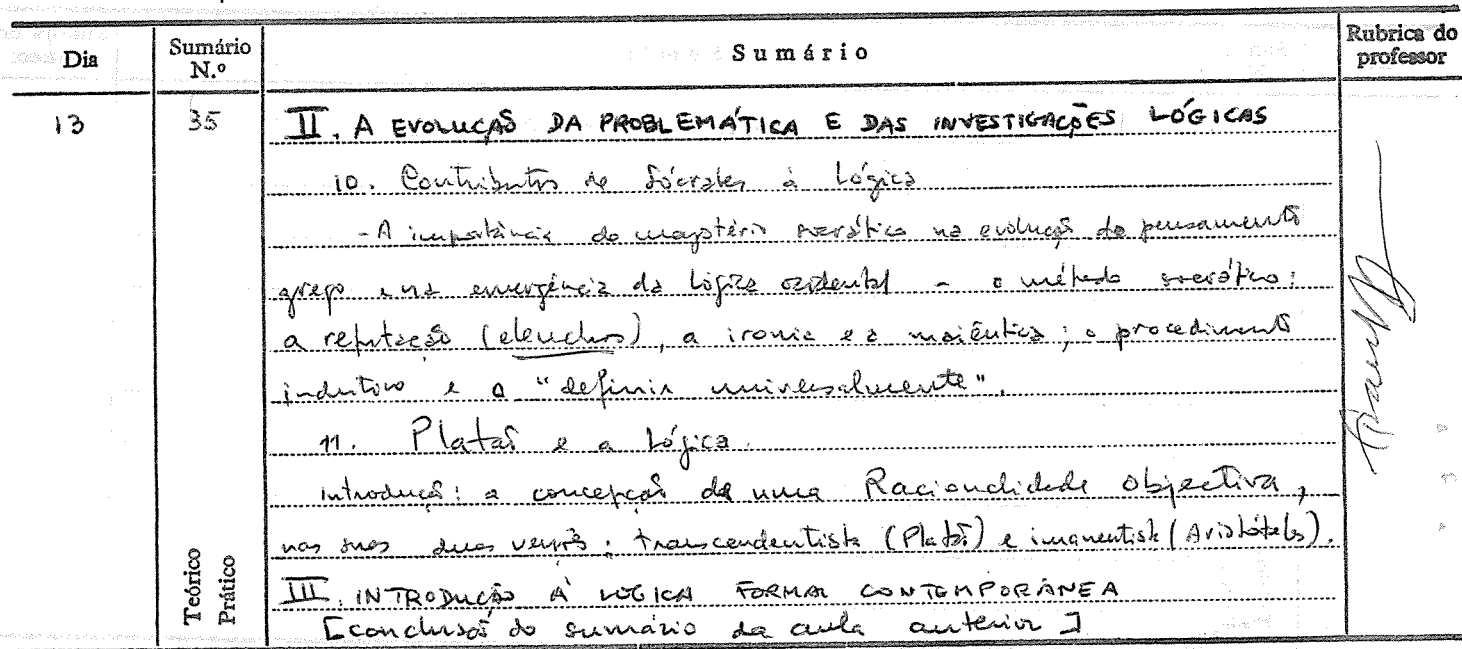 Dia Sumário N.º Sumário Rubrica do professor
13 35 II. A EVOLUÇÃO DA PROBLEMÁTICA E DAS INVESTIGAÇÕES LÓGICAS
10. Contributos de Sócrates à Lógica
- A importância do magistério socrático na evolução do pensamento
grego e na emergência da lógica ocidental - o método socrático:
a refutação (elenchos), a ironia e a maiêutica; o procedimento
indutivo e o "definir universalmente".
11. Platão e a Lógica.
Introdução: a concepção de uma Racionalidade objectiva,
nas suas duas versões: transcendentista (Platão) e imanentista (Aristóteles).
Teórico Prático III. INTRODUÇÃO À LÓGICA FORMAL CONTEMPORÂNEA
[conclusão do sumário da aula anterior]